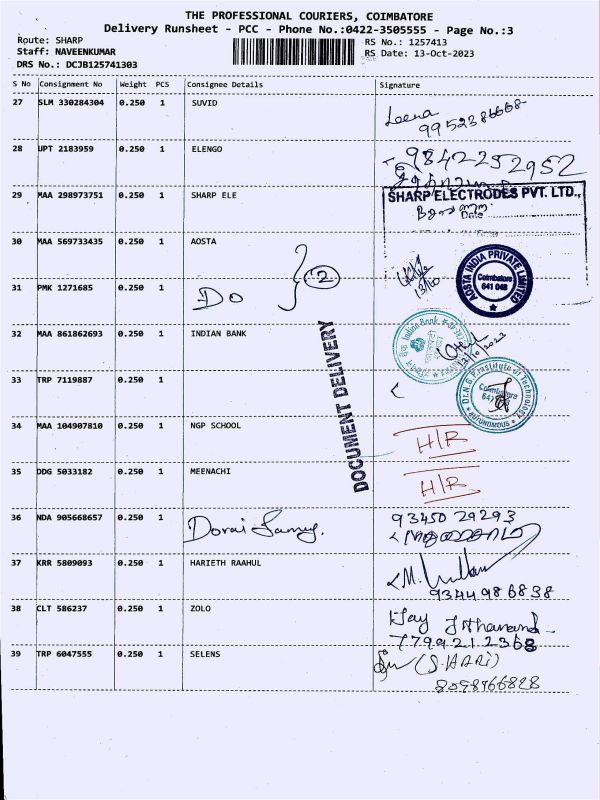 THE PROFESSIONAL COURIERS, COIMBATORE
Delivery Runsheet - PCC - Phone No.:0422-3505555 - Page No.:3
Route: SHARP
RS No.: 1257413
Staff: NAVEENKUMAR
RS Date: 13-Oct-2023
DRS No.: DCJB125741303
S No Consignment No Weight PCS Consignee Details Signature
27 SLM 330284304 0.250 1 SUVID
Leena
9952386668
28 UPT 2183959 0.250 1 ELENGO
9842252952
29 MAA 298973751 0.250 1 SHARP ELE
SHARP ELECTRODES PVT. LTD.,
Date
30 MAA 569733435 0.250 1 AOSTA
2
AOSTA INDIA PRIVATE LIMITED
Coimbatore
641 048
13/10
31 PMK 1271685 0.250 1 DO
32 MAA 861862693 0.250 1 INDIAN BANK
Indian Bank
13/10/2023
DOCUMENT DELIVERY
33 TRP 7119887 0.250 1
Dr.N.G.P.Institute of Technology
Coimbatore
AUTONOMOUS
34 MAA 104907810 0.250 1 NGP SCHOOL H/R
35 DDG 5033182 0.250 1 MEENACHI H/R
36 NDA 905668657 0.250 1 Dorai Samy.
93450 29293
37 KRR 5809093 0.250 1 HARIETH RAAHUL
M.
9344986838
38 CLT 586237 0.250 1 ZOLO
7799212368
39 TRP 6047555 0.250 1 SELENS
(S.HARI)
8098966828